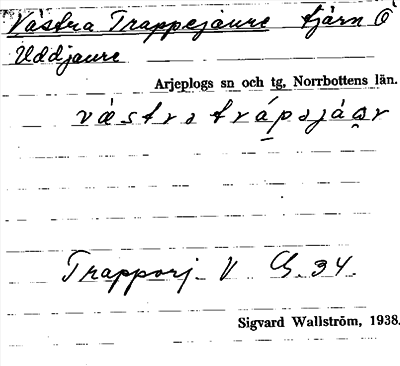 Västra Trappejaure tjärn Ö
Uddjaure
Arjeplogs sn och tg, Norrbottens län.
væstra trápəjáər
Trapporj. V G. 34.
Sigvard Wallström, 1938.